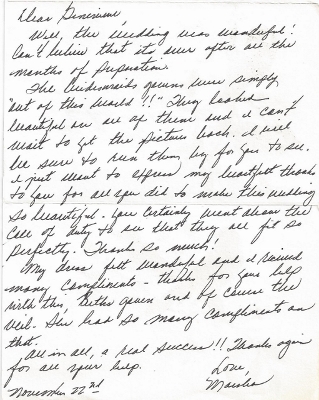 Dear
Well, the wedding was wonderful!
Can't believe that its over after all the
months of preparation.
The bridesmaids gowns were simply
"out of this world!!" They looked
beautiful on all of them and i can't
wait to get the pictures back. I will
be sure to run them by for you to see.
I just want to express my heartfelt thanks
to you for all you did to make this wedding
so beautiful. You certainly went above the
call of duty to see that they all fit so
perfectly. Thanks so much!
My dress felt wonderful and i received
many compliments - thanks for your help
with this, Beths gown and of course the
veil. She had so many compliments on
that.
All in all, a real success!! Thanks again
for all your help.
Love,
Marsha
November 22nd